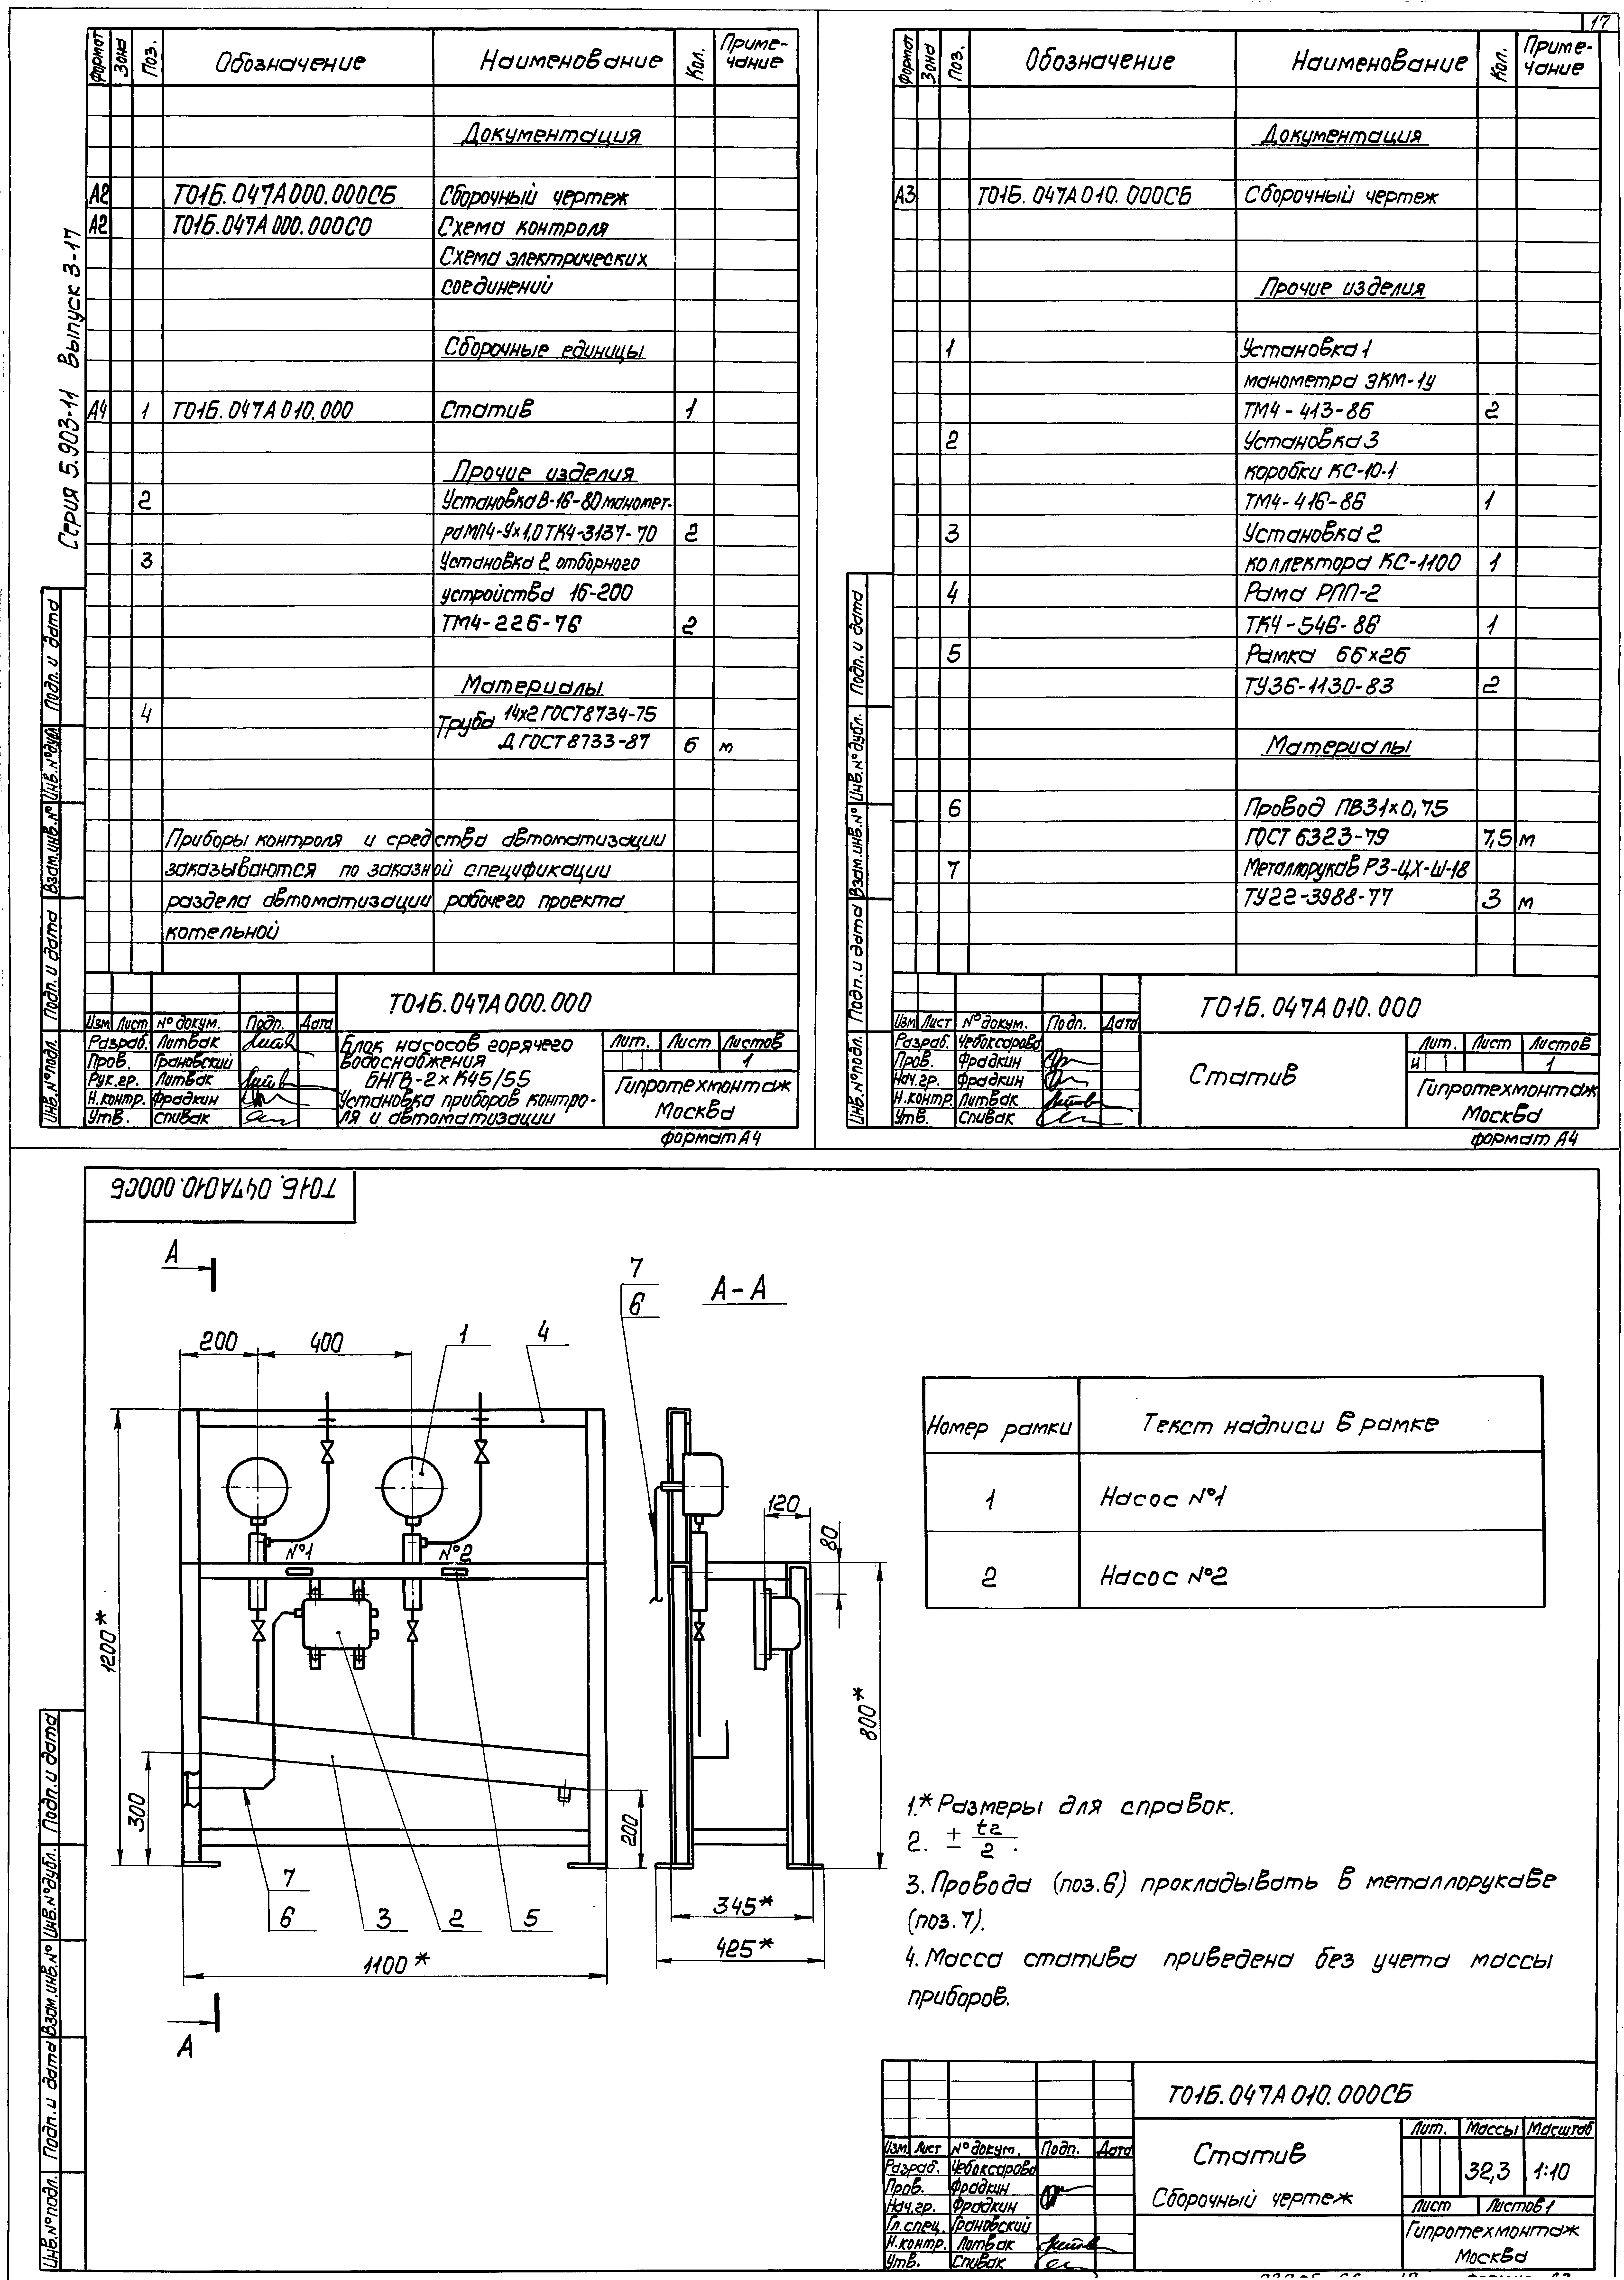 17
Серия 5.903-11 Выпуск 3-17
Формат Зона Поз. Обозначение Наименование Кол. Приме-
чание
Документация
А2 Т01Б.047А000.000СБ Сборочный чертеж
А2 Т01Б.047А000.000СО Схема контроля
Схема электрических
соединений
Сборочные единицы
А4 1 Т01Б.047А010.000 Статив 1
Прочие изделия
2 Установка В-16-80 маномет-
ра МП4-Ух1,0 ТК4-3137-70 2
3 Установка 2 отборного
устройства 16-200
ТМ4-226-76 2
Материалы
4 Труба 14х2 ГОСТ 8734-75
Д ГОСТ 8733-87 6 м
Приборы контроля и средства автоматизации
заказываются по заказной спецификации
раздела автоматизации рабочего проекта
котельной
Подп. и дата
Инв.№дубл.
Взам.инв.№
Подп. и дата
Инв.№подл.
Т01Б.047А000.000
Изм. Лист № докум. Подп. Дата
Разраб. Литвак
Пров. Грановский
Рук.гр. Литвак
Н.контр. Фрадкин
Утв. Спивак
Блок насосов горячего
водоснабжения
БНГВ-2×К45/55
Установка приборов контро-
ля и автоматизации
Лит. Лист Листов
1
Гипротехмонтаж
Москва
формат А4
Формат Зона Поз. Обозначение Наименование Кол. Приме-
чание
Документация
А3 Т01Б.047А010.000СБ Сборочный чертеж
Прочие изделия
1 Установка 1
манометра ЭКМ-1у
ТМ4-413-86 2
2 Установка 3
коробки КС-10-1
ТМ4-416-86 1
3 Установка 2
коллектора КС-1100 1
4 Рама РПП-2
ТК4-546-86 1
5 Рамка 66×26
ТУ36-1130-83 2
Материалы
6 Провод ПВ3 1×0,75
ГОСТ 6323-79 7,5 м
7 Металлорукав Р3-ЦХ-Ш-18
ТУ22-3988-77 3 м
Подп. и дата
Инв.№дубл.
Взам.инв.№
Подп. и дата
Инв.№подл.
Т01Б.047А010.000
Изм. Лист № докум. Подп. Дата
Разраб. Чебоксарова
Пров. Фрадкин
Нач.гр. Фрадкин
Н.контр. Литвак
Утв. Спивак
Статив
Лит. Лист Листов
И 1
Гипротехмонтаж
Москва
формат А4
Т01Б.047А010.000СБ
А
7
6
А-А
200 400 1 4
120
80
№1 №2
1200*
800*
300
200
7
6
3 2 5
345*
425*
1100*
А
Номер рамки Текст надписи в рамке
1 Насос №1
2 Насос №2
1.* Размеры для справок.
2. ± t2/2.
3. Провода (поз.6) прокладывать в металлорукаве
(поз.7).
4. Масса статива приведена без учета массы
приборов.
Подп. и дата
Инв.№дубл.
Взам.инв.№
Подп. и дата
Инв.№подл.
Т01Б.047А010.000СБ
Изм. Лист № докум. Подп. Дата
Разраб. Чебоксарова
Пров. Фрадкин
Нач.гр. Фрадкин
Гл.спец. Грановский
Н.контр. Литвак
Утв. Спивак
Статив
Сборочный чертеж
Лит. Массы Масштаб
32,3 1:10
Лист Листов 1
Гипротехмонтаж
Москва